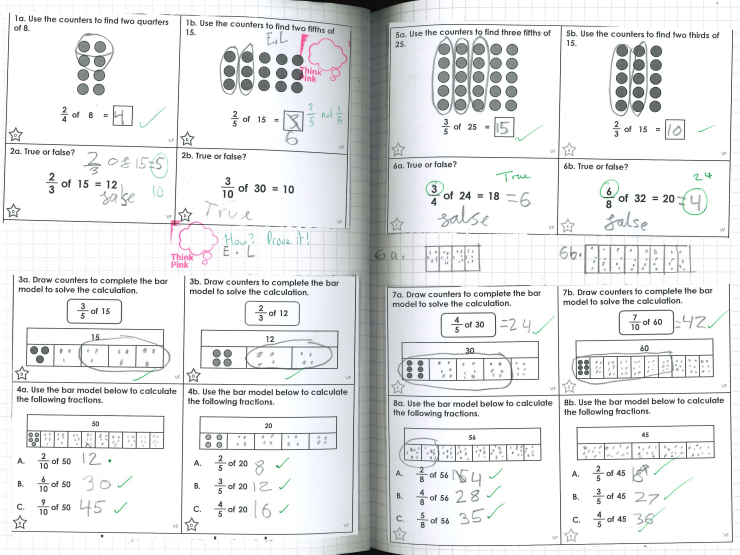 1a. Use the counters to find two quarters
of 8.
2/4 of 8 = 4
VF
1b. Use the counters to find two fifths of
15.
E.L
Think
Pink
2/5 of 15 = 3
2/5 not 1/5
6
VF
2a. True or false?
2/3 of 15 = 5
2/3 of 15 = 12
false
10
VF
2b. True or false?
3/10 of 30 = 10
True
VF
Think
Pink
How? Prove it!
E.L
3a. Draw counters to complete the bar
model to solve the calculation.
3/5 of 15
15
VF
3b. Draw counters to complete the bar
model to solve the calculation.
2/3 of 12
12
VF
4a. Use the bar model below to calculate
the following fractions.
50
A. 2/10 of 50 12
B. 6/10 of 50 30
C. 9/10 of 50 45
VF
4b. Use the bar model below to calculate
the following fractions.
20
A. 2/5 of 20 8
B. 3/5 of 20 12
C. 4/5 of 20 16
VF
5a. Use the counters to find three fifths of
25.
3/5 of 25 = 15
VF
5b. Use the counters to find two thirds of
15.
2/3 of 15 = 10
VF
6a. True or false?
True
3/4 of 24 = 18 = 6
false
VF
6b. True or false?
24
6/8 of 32 = 20 = 4
false
VF
6a.
6b.
7a. Draw counters to complete the bar
model to solve the calculation.
4/5 of 30 = 24
30
VF
7b. Draw counters to complete the bar
model to solve the calculation.
7/10 of 60 = 42
60
VF
8a. Use the bar model below to calculate
the following fractions.
56
A. 2/8 of 56
B. 4/8 of 56 28
C. 5/8 of 56 35
VF
8b. Use the bar model below to calculate
the following fractions.
45
A. 2/5 of 45
B. 3/5 of 45 27
C. 4/5 of 45 36
VF